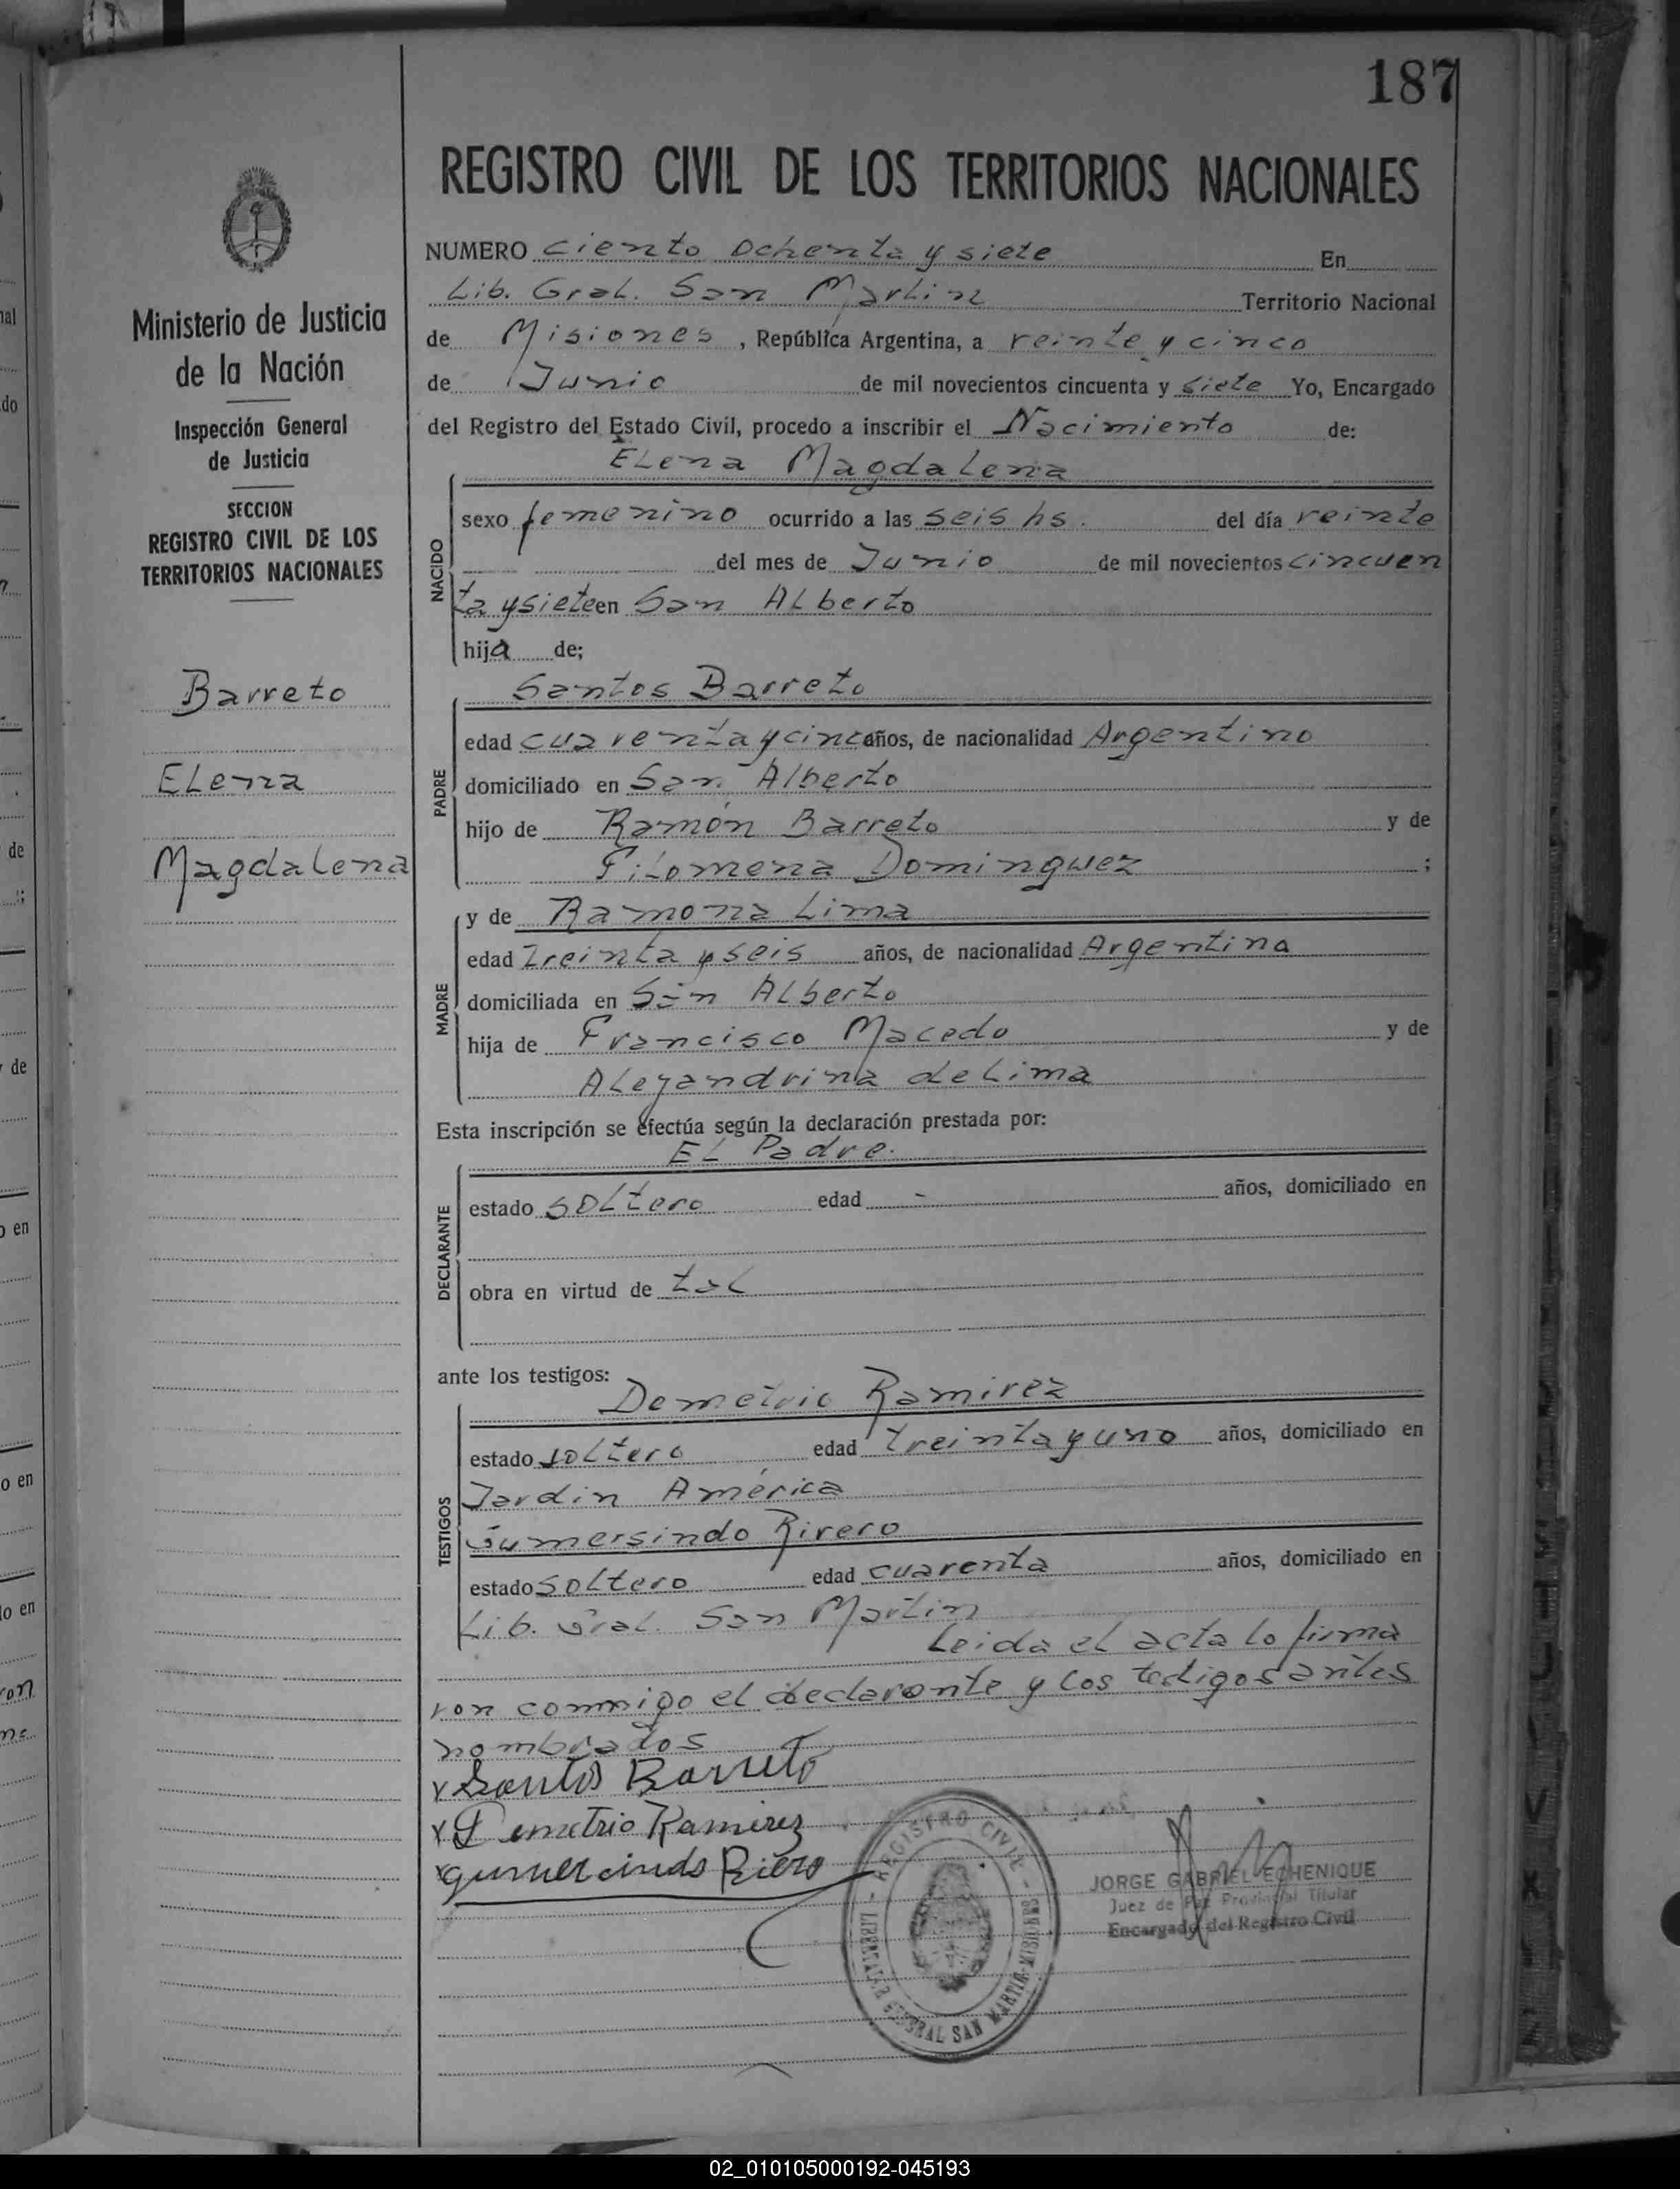 187
REGISTRO CIVIL DE LOS TERRITORIOS NACIONALES
NUMERO ciento ochenta y siete En
Lib. Gral. San Martin Territorio Nacional
de Misiones, República Argentina, a veinte y cinco
de Junio de mil novecientos cincuenta y siete Yo, Encargado
del Registro del Estado Civil, procedo a inscribir el Nacimiento de:
Elena Magdalena
NACIDO
sexo femenino ocurrido a las seis hs. del día veinte
del mes de Junio de mil novecientos cincuen
ta y siete en San Alberto
hija de;
PADRE
Santos Barreto
edad cuarenta y cinco años, de nacionalidad Argentino
domiciliado en San Alberto
hijo de Ramón Barreto y de
Filomena Dominguez ;
MADRE
y de Ramona Lima
edad Treinta y seis años, de nacionalidad Argentina
domiciliada en San Alberto
hija de Francisco Macedo y de
Aleyandrina de Lima
Esta inscripción se efectúa según la declaración prestada por:
El Padre.
DECLARANTE
estado soltero edad - años, domiciliado en
obra en virtud de tal
ante los testigos:
TESTIGOS
Demetrio Ramirez
estado soltero edad treinta y uno años, domiciliado en
Jardin América
Gumersindo Rivero
estado soltero edad cuarenta años, domiciliado en
Lib. Gral. San Martin
Leida el acta lo firma
ron conmigo el declarante y los testigos antes
nombrados
x Santos Barreto
x Demetrio Ramirez
x gumercindo Riero
REGISTRO CIVIL
LIBERTADOR GENERAL SAN MARTIN-MISIONES
JORGE GABRIEL ECHENIQUE
Juez de Paz Provincial Titular
Encargado del Registro Civil
Ministerio de Justicia
de la Nación
Inspección General
de Justicia
SECCION
REGISTRO CIVIL DE LOS
TERRITORIOS NACIONALES
Barreto
Elena
Magdalena
02_010105000192-045193